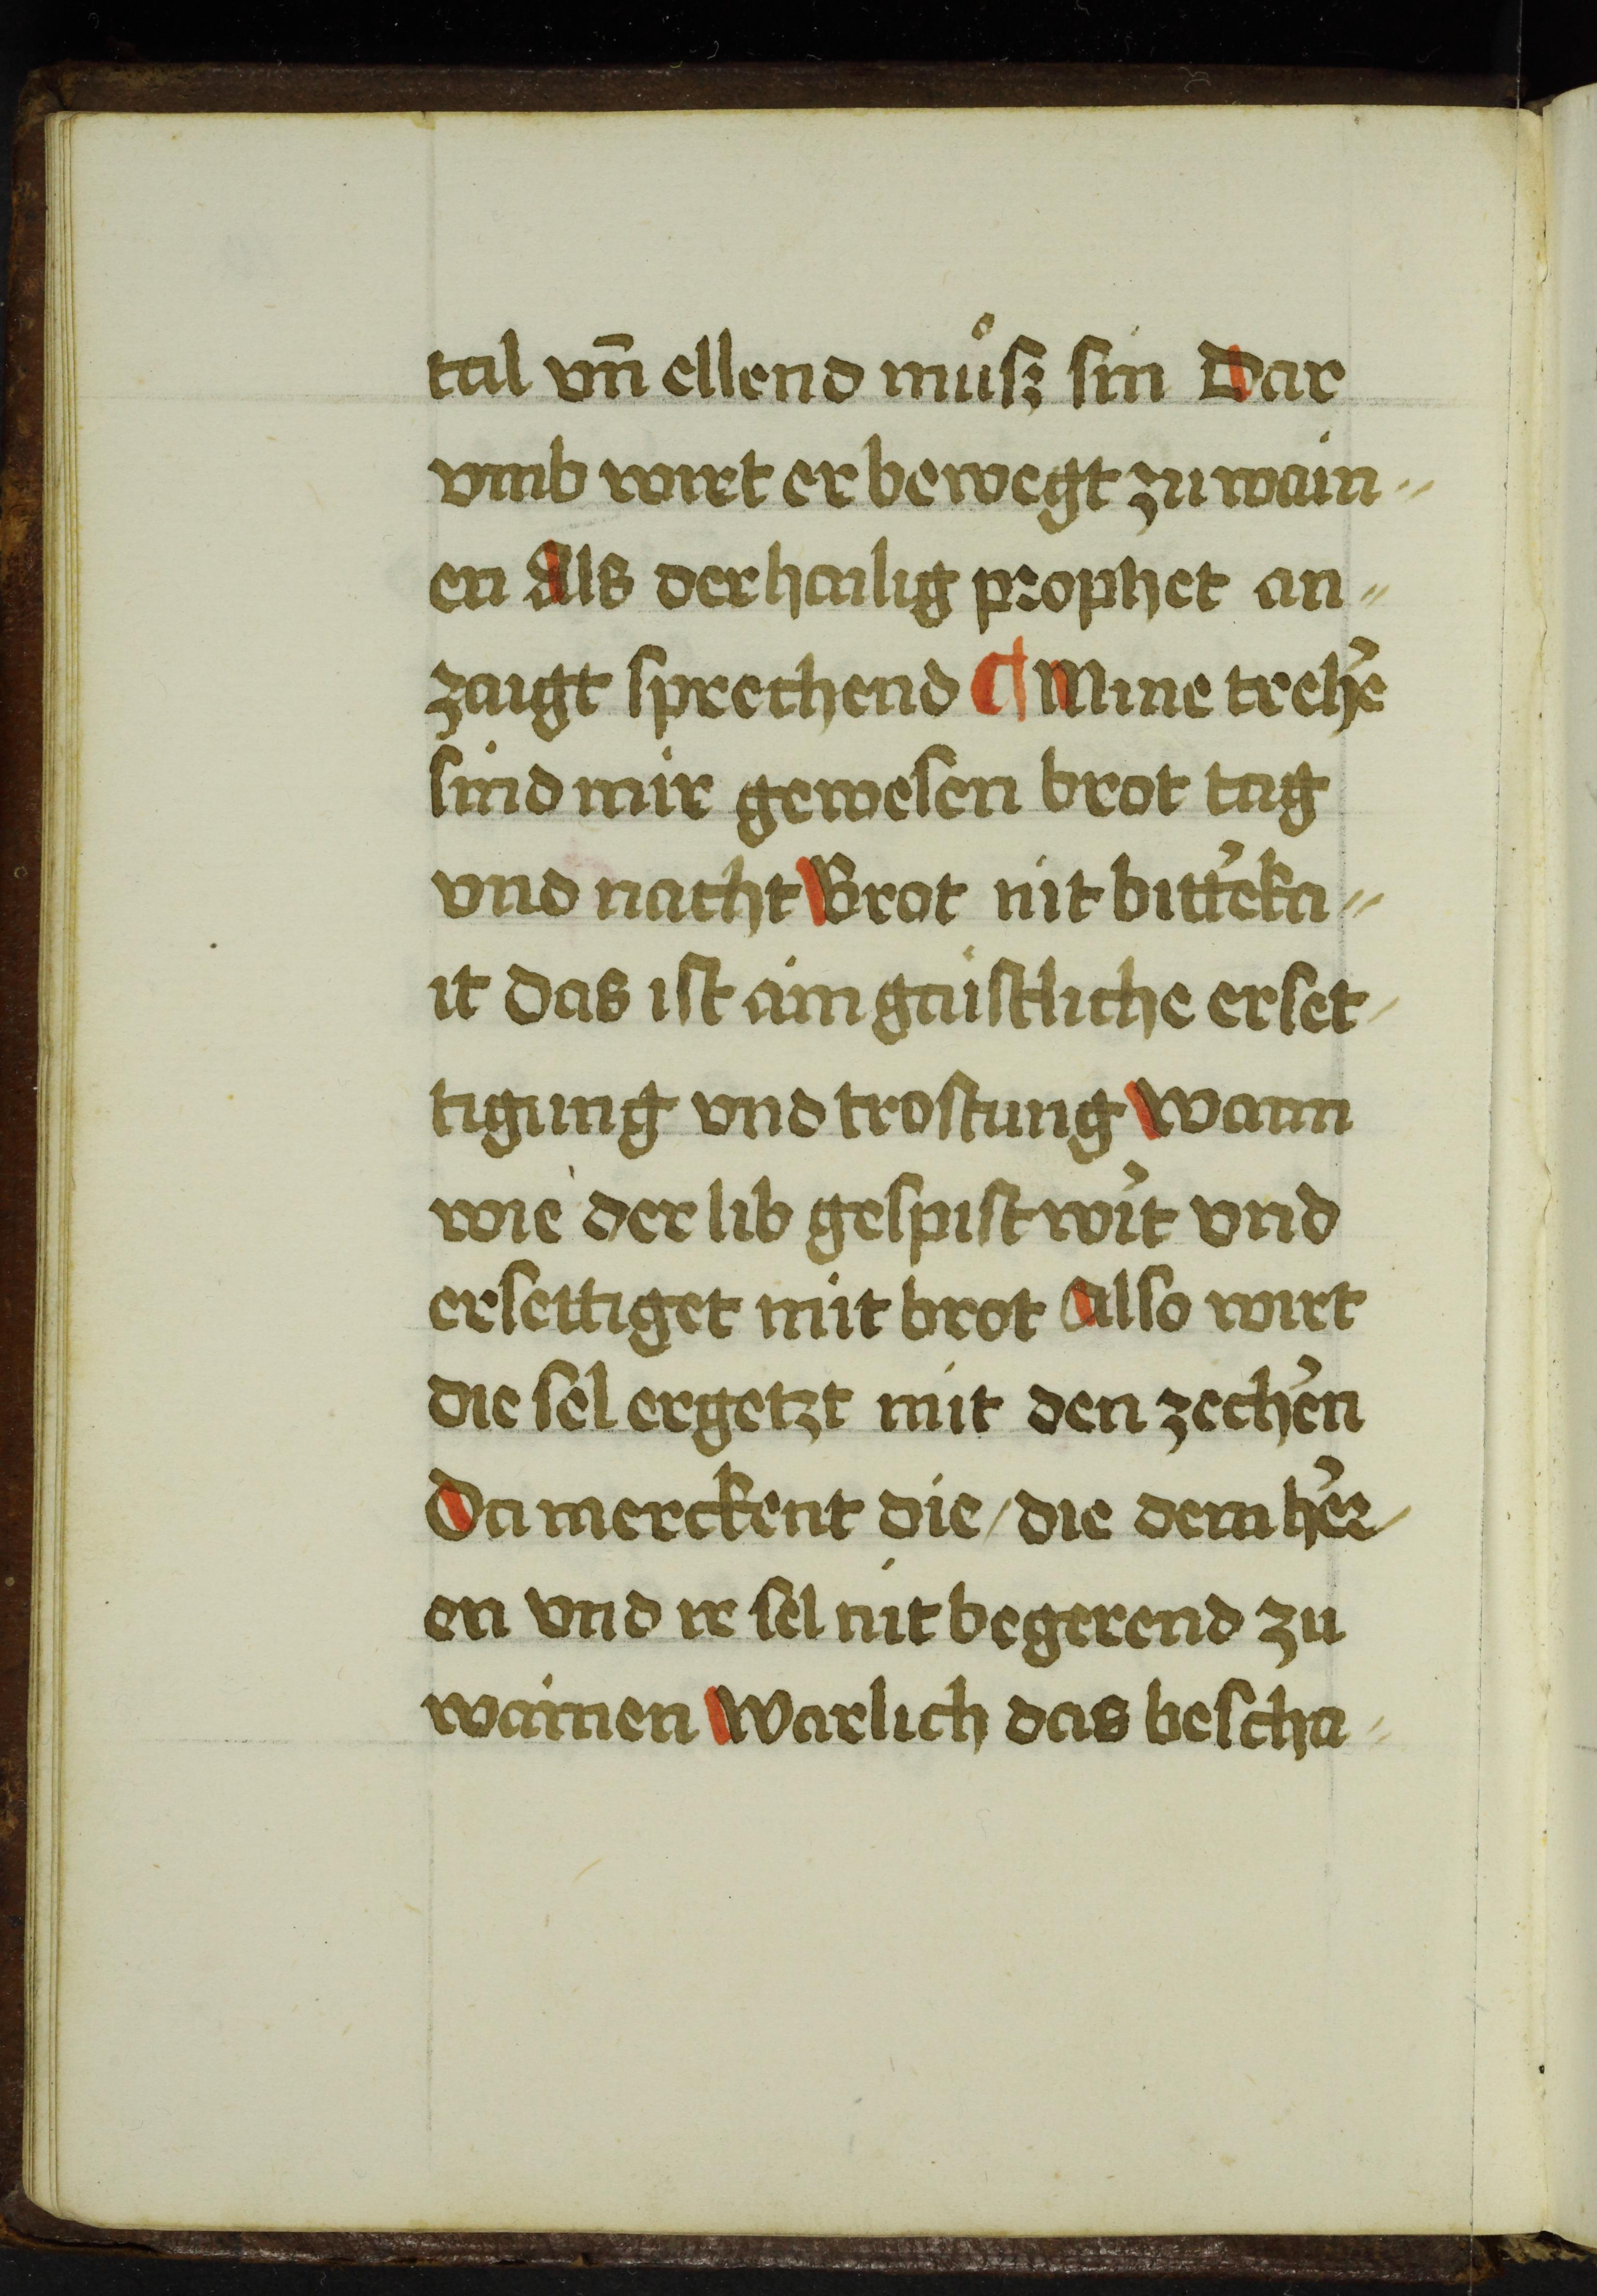 tal vn̄ ellend můſz ſin Dar
vmb wirt er bewegt zu wain⸗
en Als der hailig prophet an⸗
zaigt ſprechend ¶ Mine treh̓e
ſind mir geweſen brot tag
vnd nacht Brot nit bitt̓eka⸗
it das iſt ain gaiſtliche erſet⸗
tigung vnd troſtung wann
wie der lib geſpiſt wi̓t vnd
erſettiget mit brot Alſo wirt
die ſel ergetzt mit den zech̓en
Da merckent die / die dem h̓er⸗
en vnd ir ſel nit begerend zu
wainen Warlich das beſcha⸗